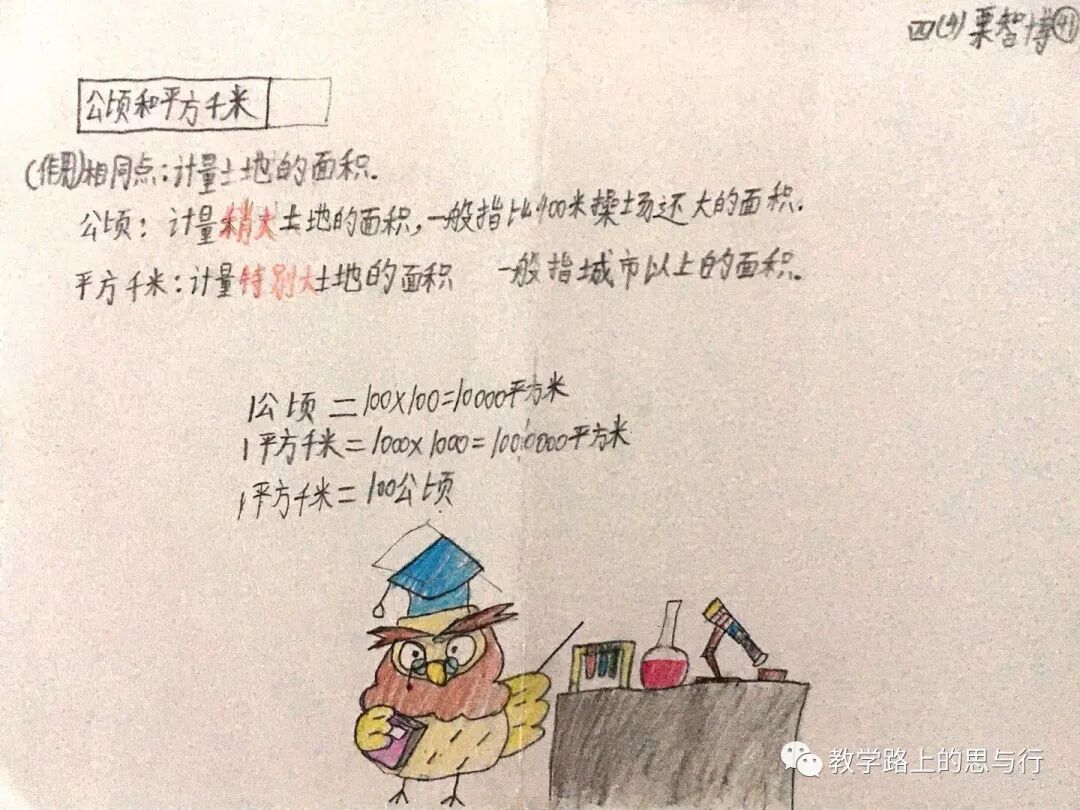 四(4)栗智博41
公顷和平方千米
(作用)相同点:计量土地的面积.
公顷:计量稍大土地的面积,一般指比400米操场还大的面积.
平方千米:计量特别大土地的面积 一般指城市以上的面积.
1公顷=100×100=10000平方米
1平方千米=1000×1000=1000000平方米
1平方千米=100公顷
教学路上的思与行